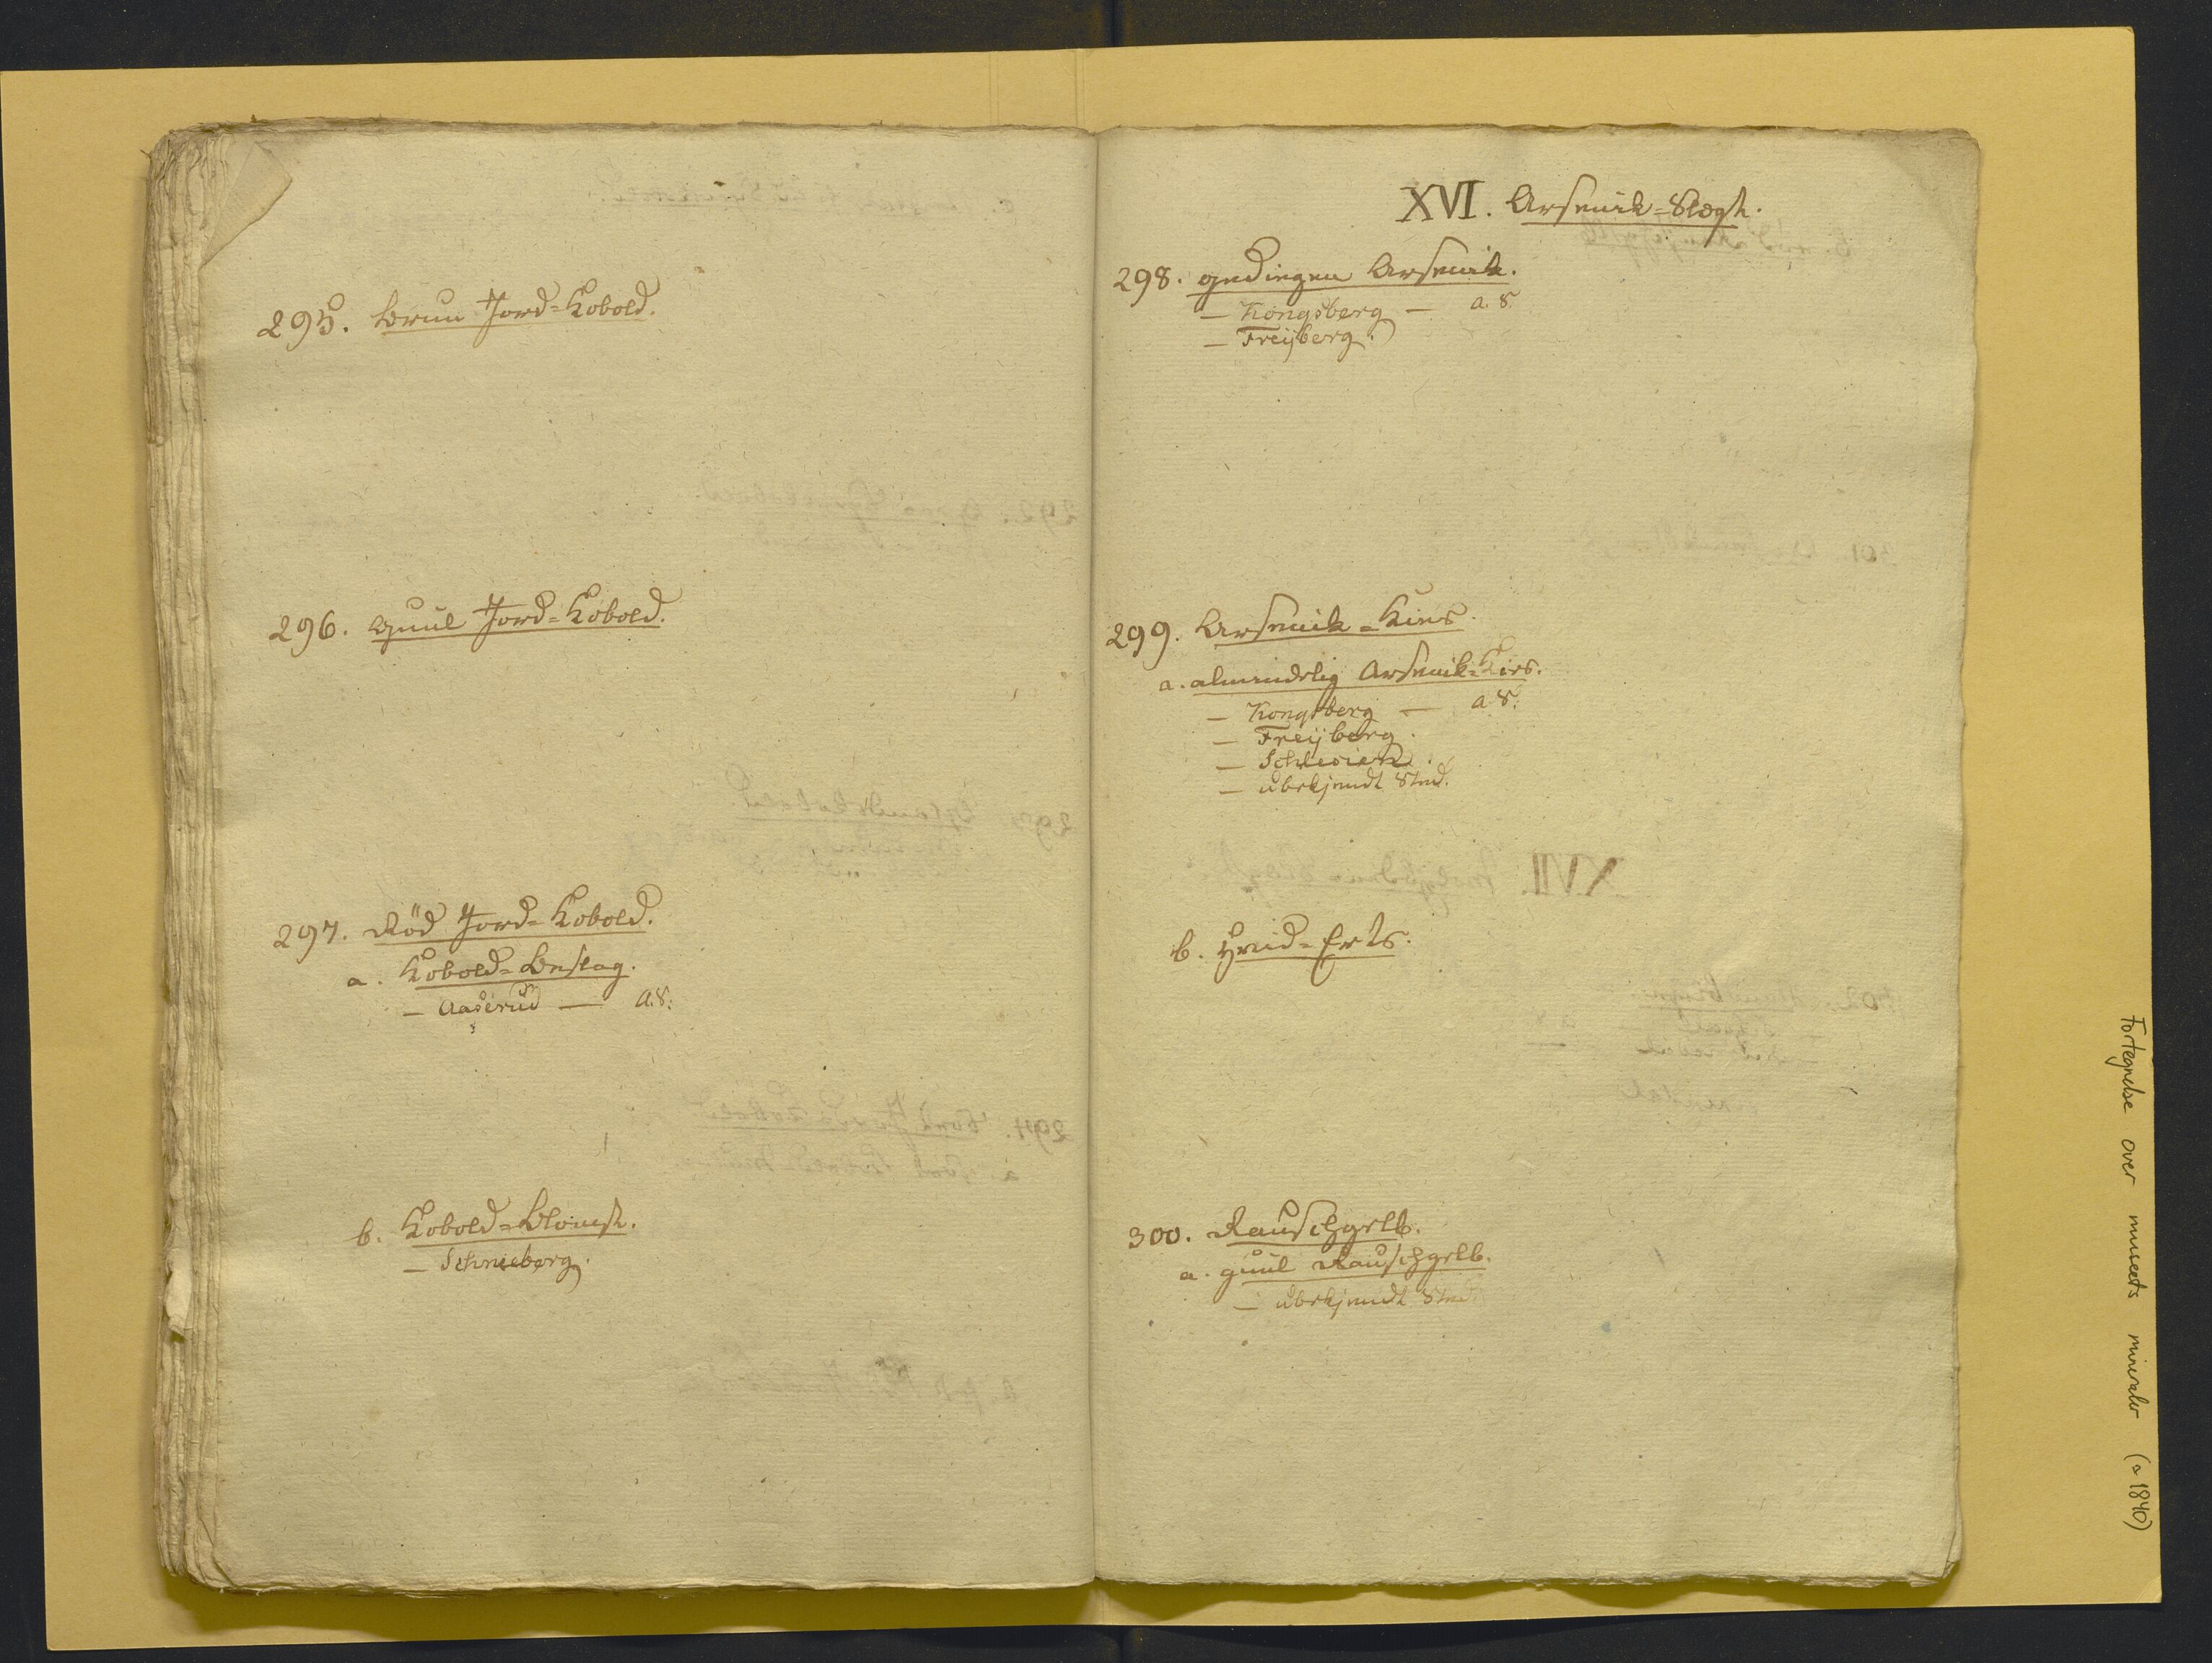 295. brun Jord-Kobold.
296. guul Jord-Kobold.
297. Röd Jord-Kobold.
a. Kobold-Beslag.
— Aaserud — a.8.
b. Kobold-Blomst.
— Schneeberg.
XVI. Arsenik-Slægt.
298. gediegen Arsenik.
— Kongsberg — a. 8
— Freyberg.
299. Arsenik-Kies.
a. almindelig Arsenik-Kies.
— Kongsberg — a 8.
— Freyberg.
—
— ubekjendt Sted.
b. Hvid-Erts.
300. Rauschgelb.
a. guul Rauschgelb.
— ubekjendt Sted.
Fortegnelse over museets mineraler (≈ 1840)